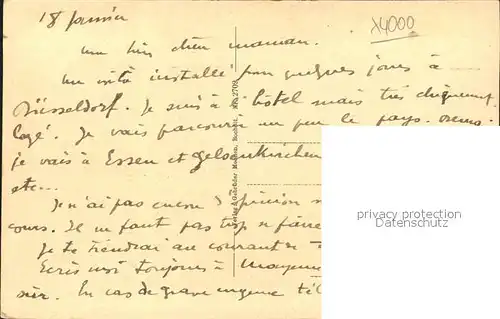 18 janvier
14000
ma bien chère maman.
me voilà installé pour quelques jours à
Düsseldorf. Je suis à l'hôtel mais très chiquement
logé. Je vais parcourir un peu le pays.
je vais à Essen et Gelsenkirchen
etc...
Je n'ai pas encore d'opinion
cours. Il ne faut pas trop s'en faire
Je te tiendrai au courant
Ecris moi toujours à Mayence
sûr. En cas de grave urgence
privacy protection
Datenschutz